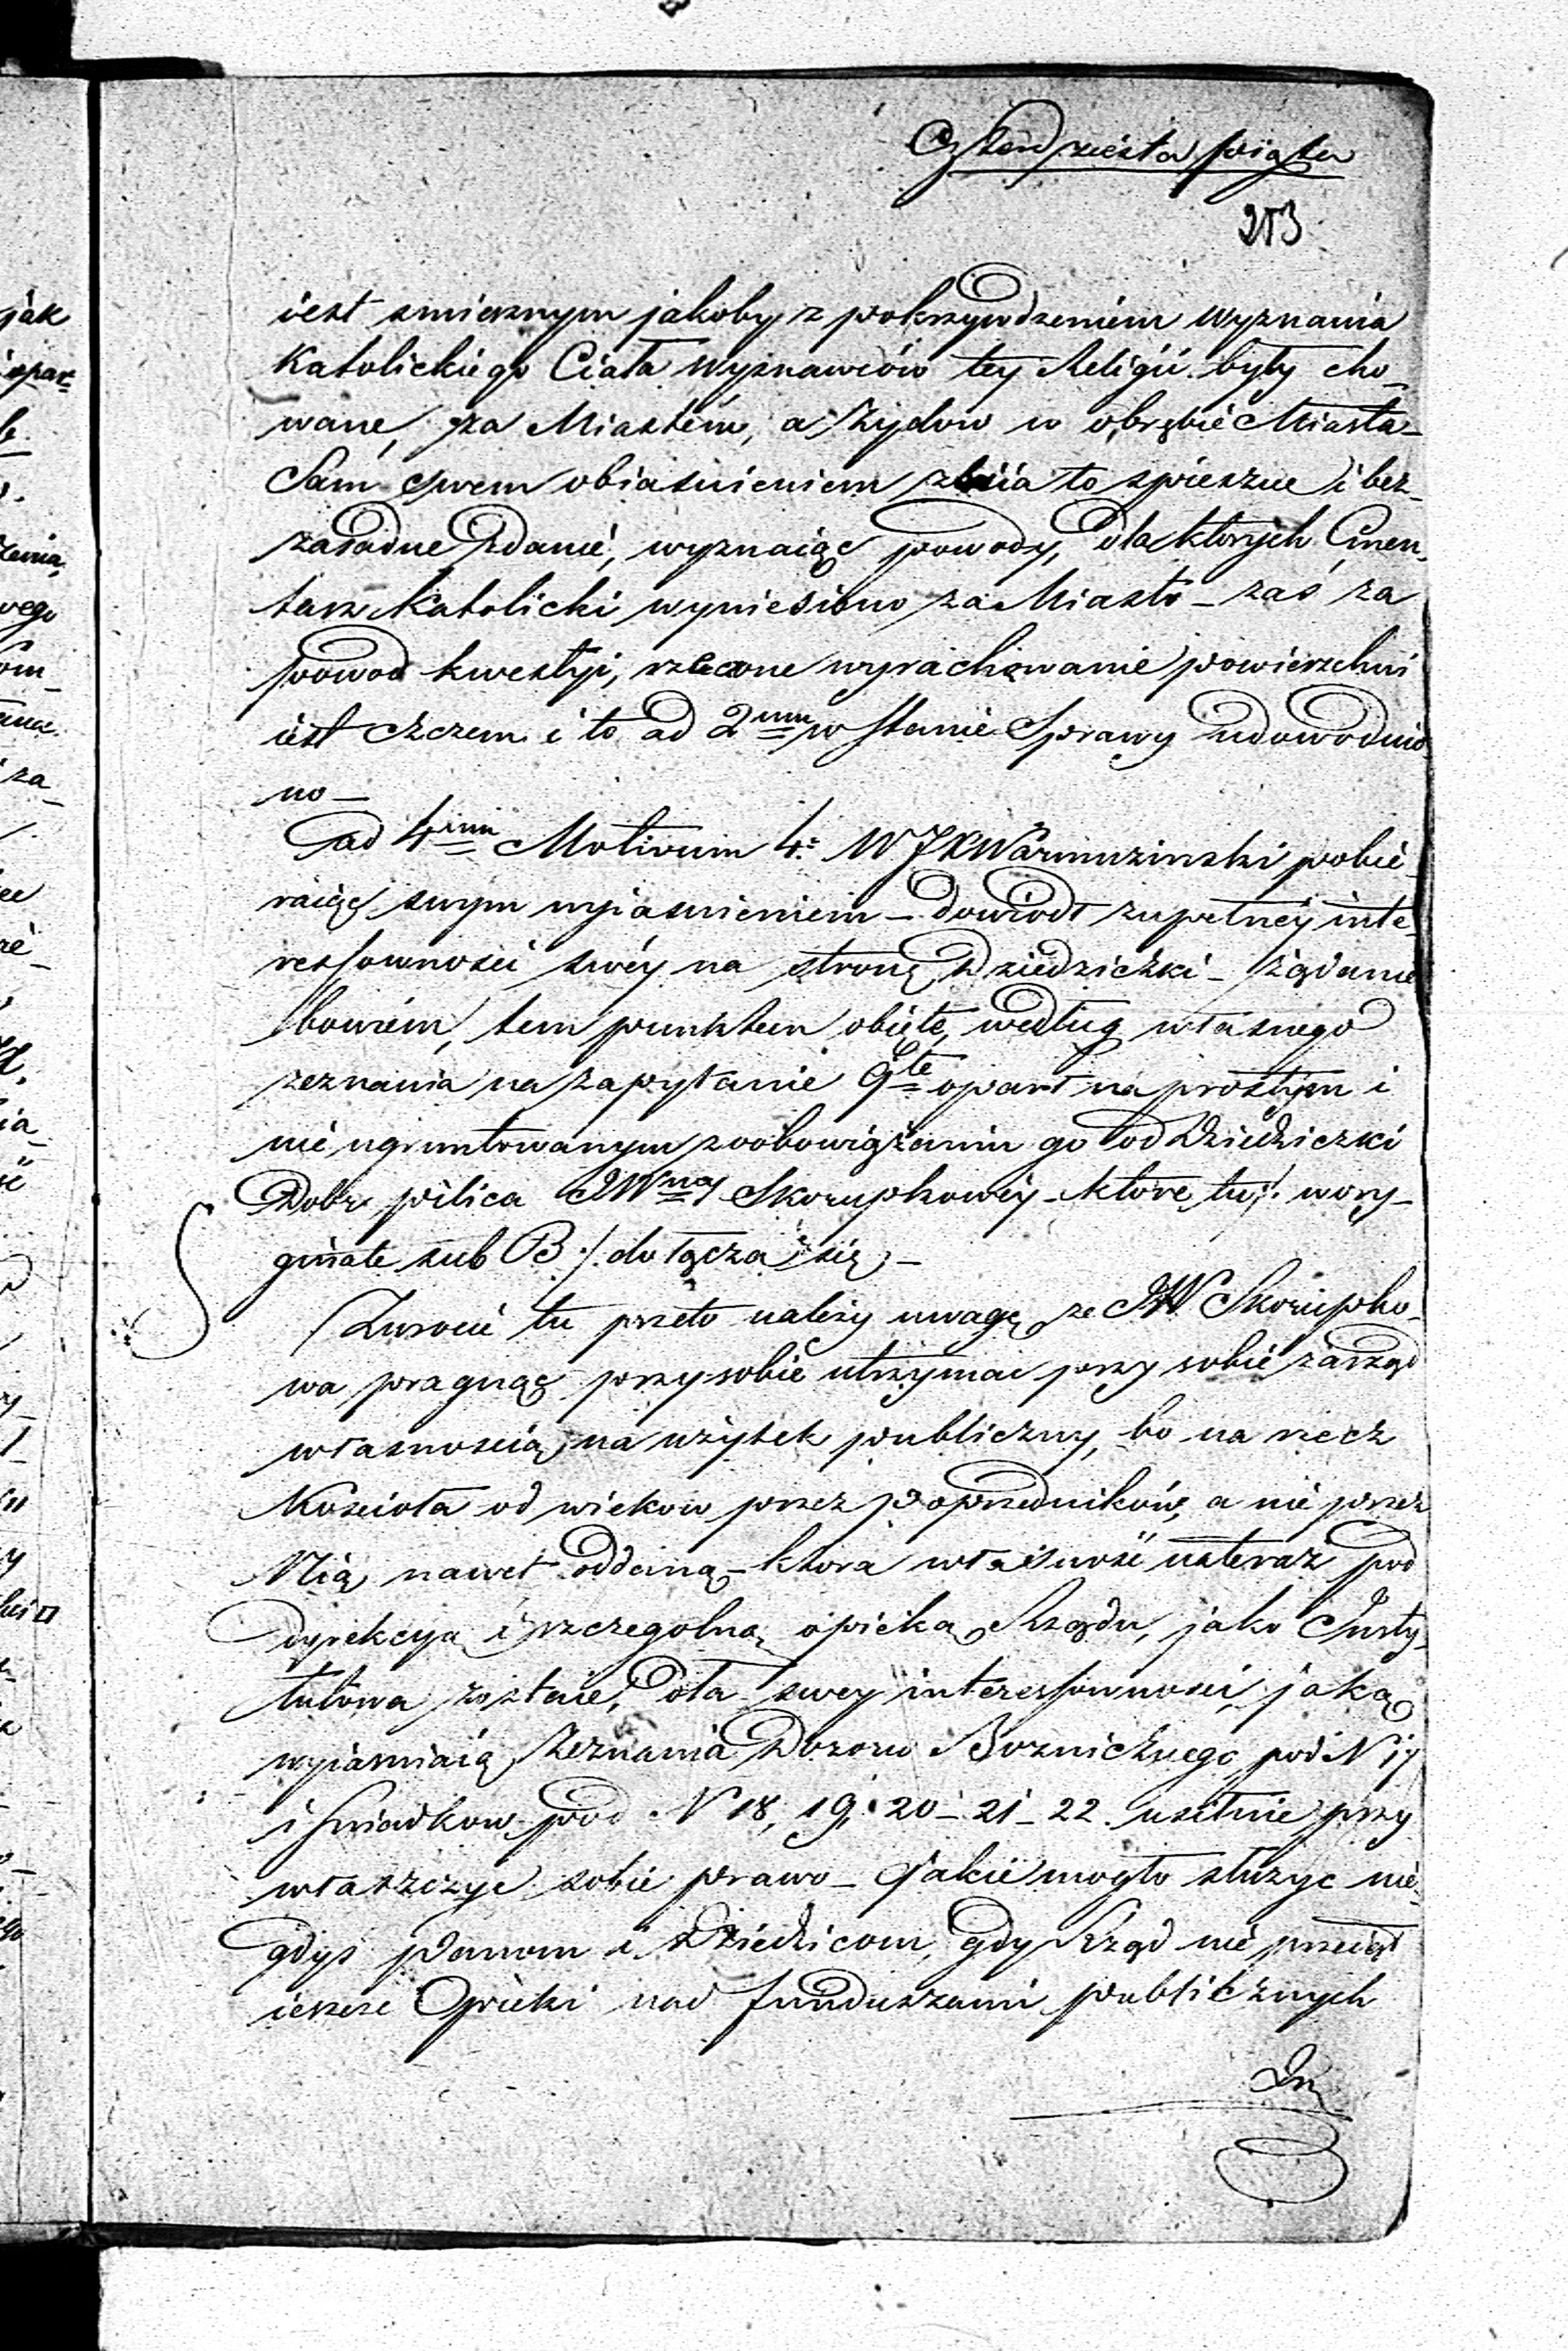 Czterdziesta piąta
253
iest smiesznym jakoby z pokrzywdzeniem wyznania
Katolickiego Ciała wyznawców tey Religii były cho_
wane, za Miastem, a Żydow w obrębie Miasta_
Sam swem obiasnieniem zbiia to spieszne i bez_
zasadne zdanie, wyznaiąc powody, dla ktorych Cmen_
tarz Katolicki wyniesiono za Miasto _ zaś za
powod kwestyi, rzeczone wyrachowanie powierzchni
iest czczem i to ad 2um w stanie Sprawy udowodnio
no _
ad 4um Motivum 4: WJX Warmuzinski pobie_
raiąc swym wyiasnieniem _ dowiodł zupełney inte_
ressowności swéy na stronę Dziedziczki _ żądanie
bowiem, tem punktem obięte, według własnego
zeznania na zapytanie 9te oparł na prostym i
nie ugruntowanym zoobowiązaniu go od Dziedziczki
Dobr Pilica JWney Skorupkowey _ które tu /: w ory_
ginale sub B :/ dołącza się _
Zwrocić tu przeto należy uwagę, ze JW Skorupko_
wa pragnąc przy sobie utrzymac przy sobie zarząd
własnoscią na użytek publiczny, bo na rzecz
Koscioła od wiekow przez poprzedników, a nie przez
Nią nawet oddaną _ ktora własność nateraz pod
dyrekcya i szczegolną opieką Rządu, jako Insty_
tutowa zostaie, dla swey interessowności, jaką
wyiasniaią zeznania Dozoru Bożnicznego pod N 17
i swiadkow pod N 18, 19, 20 _ 21 _ 22. usilnie przy
właszczyc sobie prawo _ jakie mogło służyc nie_
gdys Panom i Dziedzicom, gdy Rząd nie przeiął
ieszcze Opieki nad funduszami publicznych
In